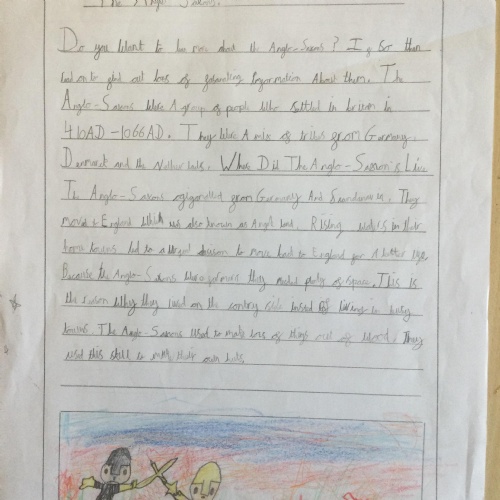 The Anglo Saxons.
Do you want to  more about the Anglo-Saxons? If so than
read on to find out lots of  information About them. The
Anglo-Saxons were A group of people who settled in  in
410AD-1066AD. They were A mix of tribes from Germany,
Denmark and the Netherlands. Where Did The Anglo-Saxons Live
The Anglo-Saxons  from Germany And Scandinavia. They
moved to England Which was also known as Angle land. Rising waters in their
home towns led to a urgent decision to move  to England for A better life.
Because the Anglo-Saxons were farmers they needed plenty of space. This is
the reason why they lived on the  side insted of living in busy
towns. The Anglo-Saxons used to make lots of things out of wood. They
used this skill to  their own huts.